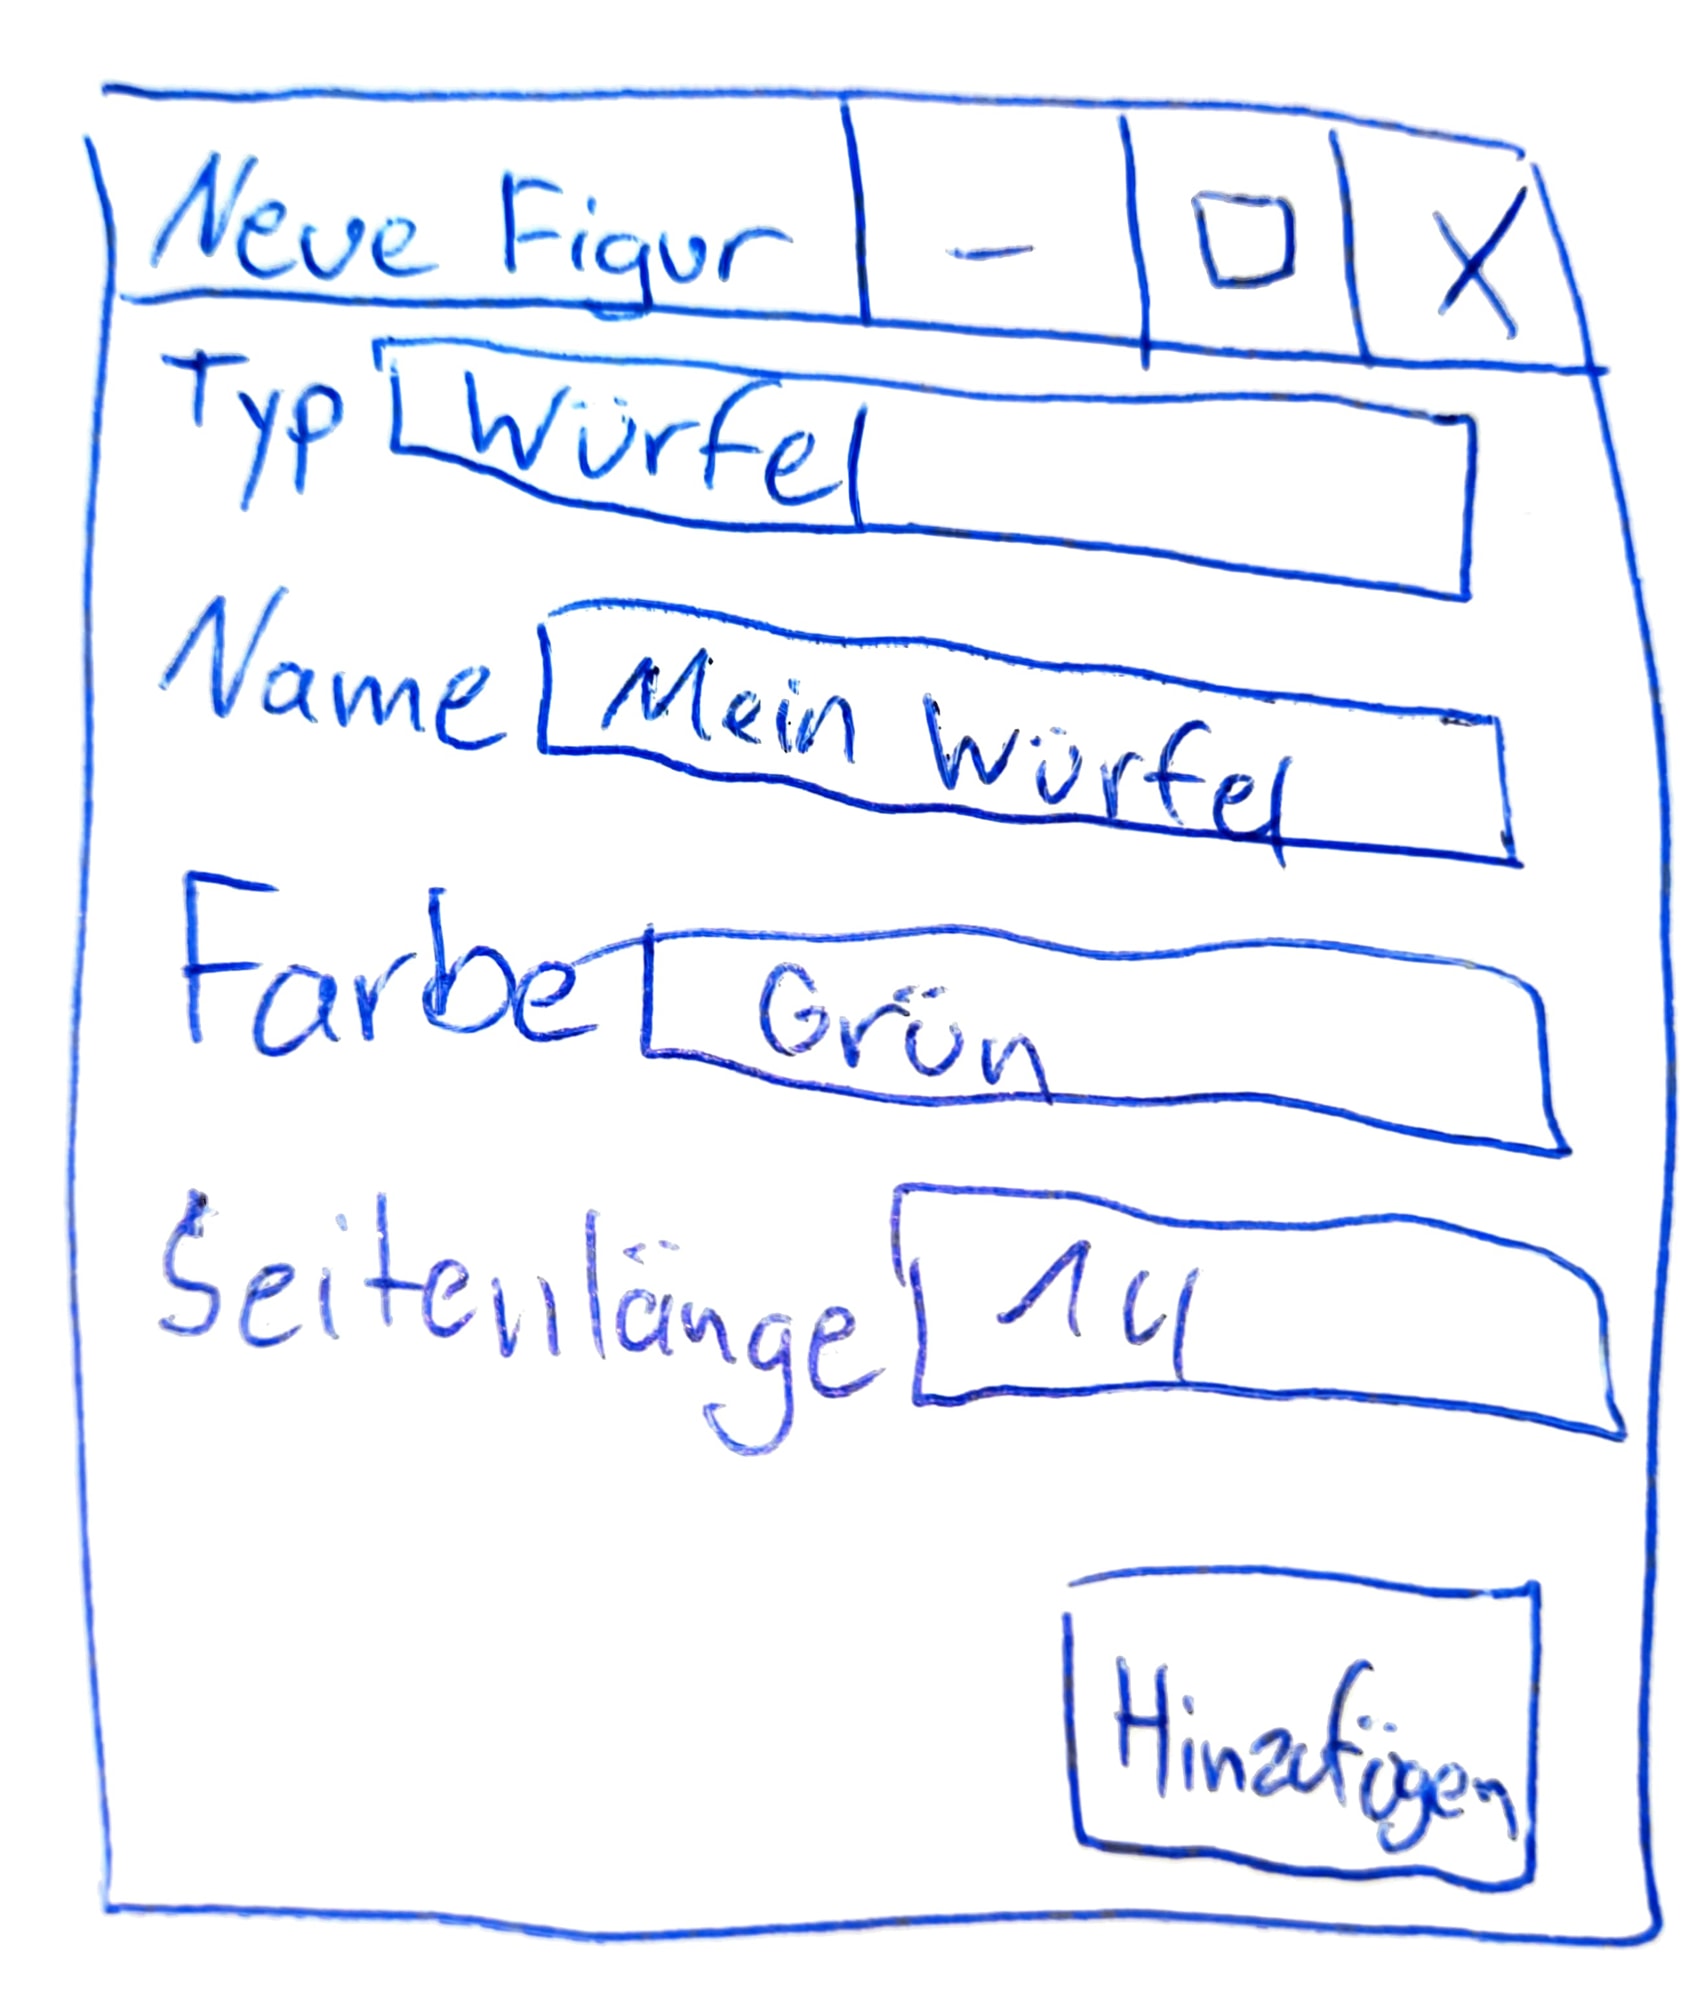 Neue Figur - □ X
Typ Würfel
Name Mein Würfel
Farbe Grün
Seitenlänge 14
Hinzufügen